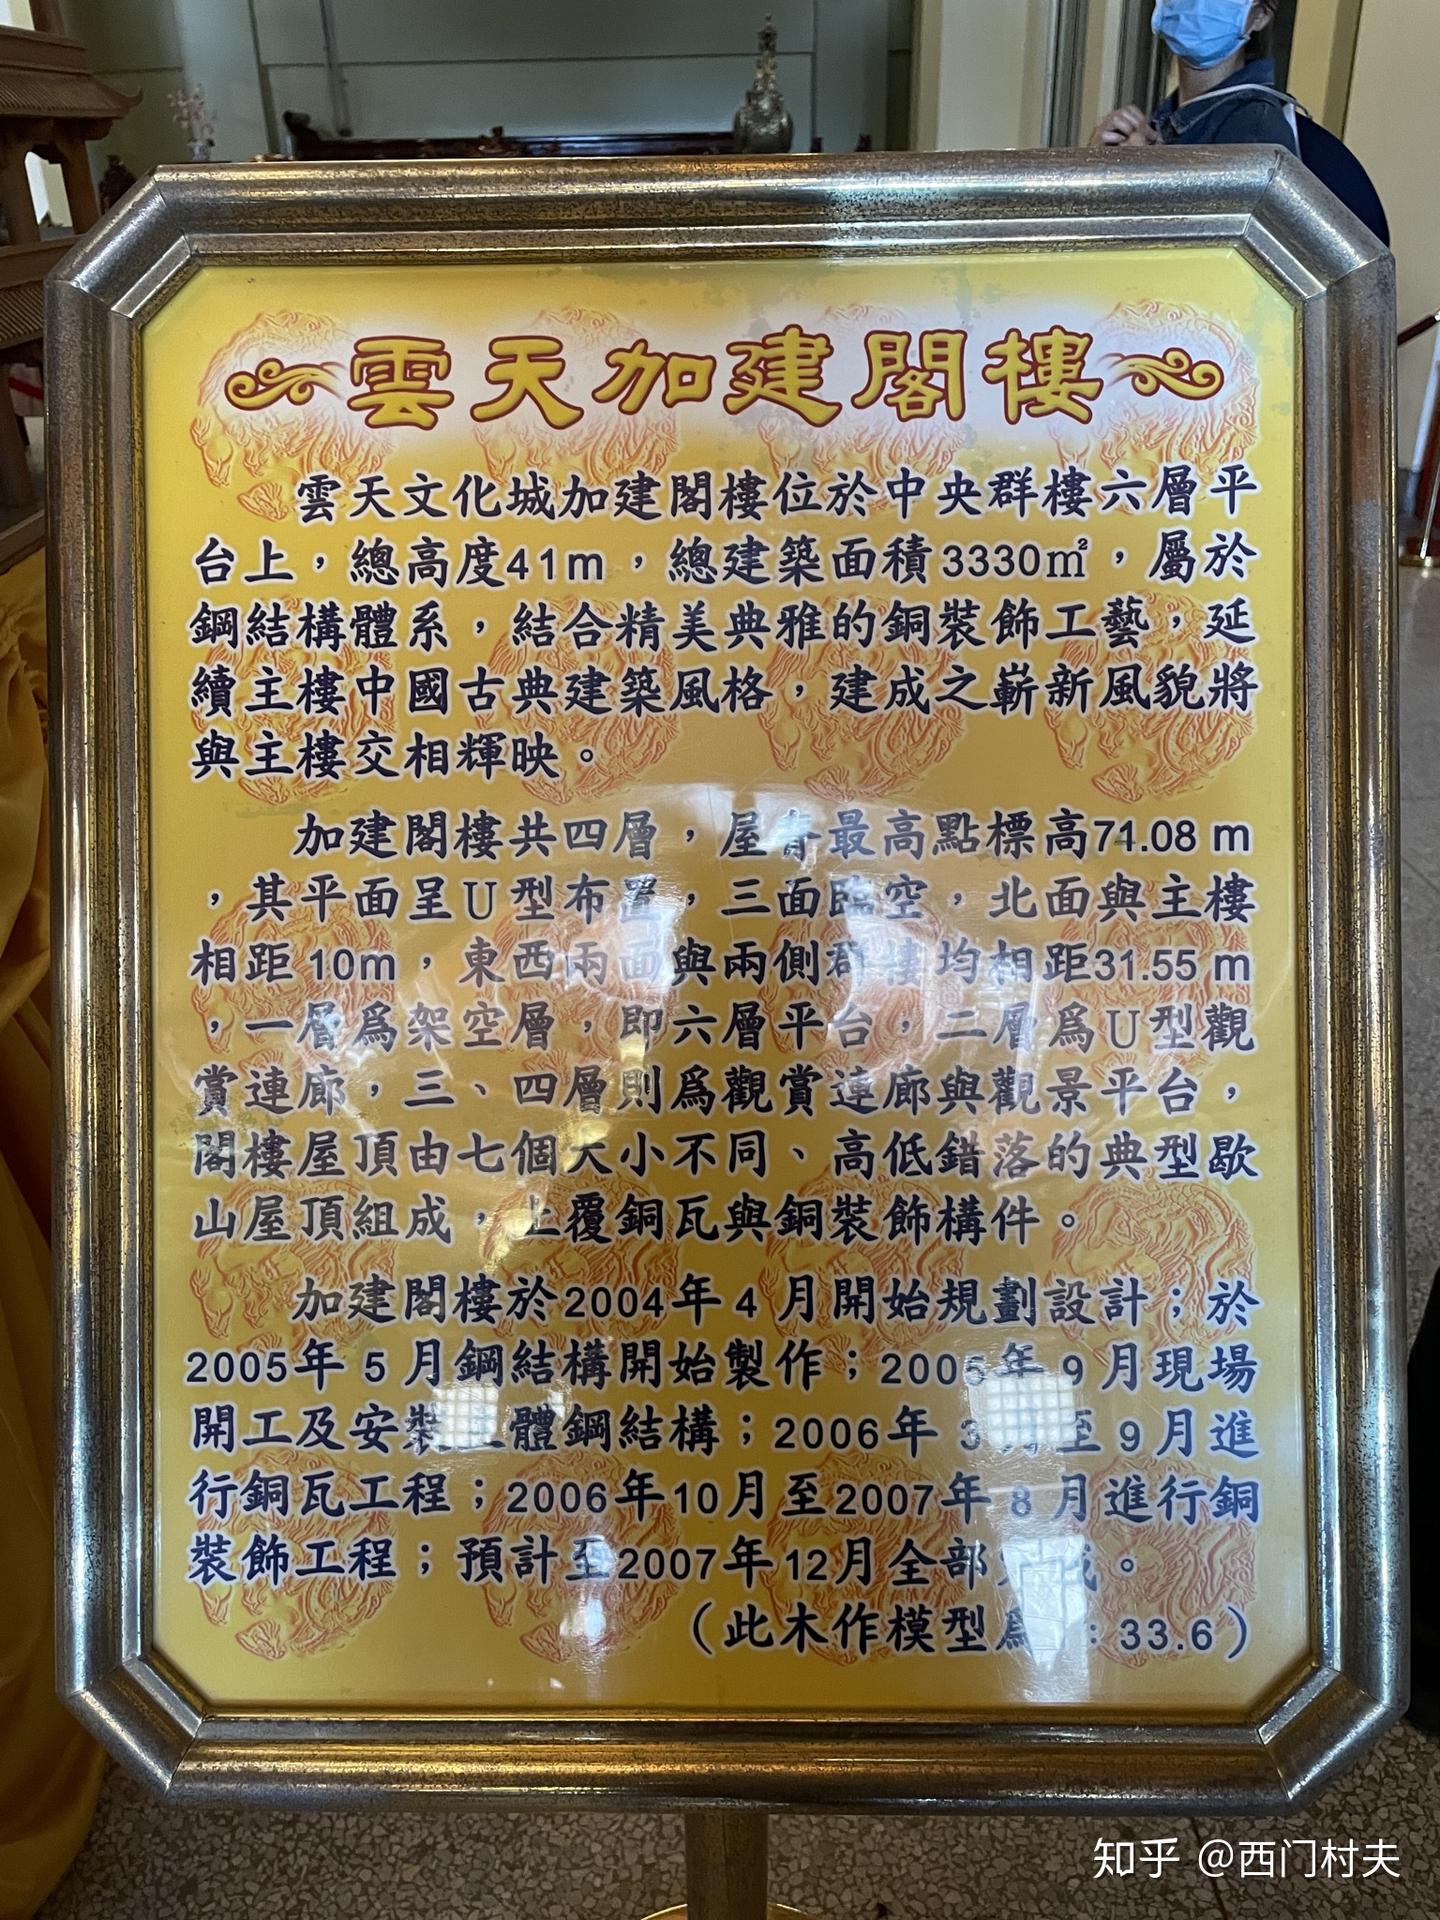 雲天加建閣樓
雲天文化城加建閣樓位於中央群樓六層平
台上，總高度41m，總建築面積3330㎡，屬於
鋼結構體系，結合精美典雅的銅裝飾工藝，延
續主樓中國古典建築風格，建成之嶄新風貌將
與主樓交相輝映。
加建閣樓共四層，屋脊最高點標高71.08 m
，其平面呈U型布置，三面臨空，北面與主樓
相距10m，東西兩面與兩側群樓均相距31.55 m
，一層爲架空層，即六層平台，二層爲U型觀
賞連廊，三、四層則爲觀賞連廊與觀景平台，
閣樓屋頂由七個大小不同、高低錯落的典型歇
山屋頂組成，上覆銅瓦與銅裝飾構件。
加建閣樓於2004年4月開始規劃設計；於
2005年5月鋼結構開始製作；2005年9月現場
開工及安裝主體鋼結構；2006年3月至9月進
行銅瓦工程；2006年10月至2007年8月進行銅
裝飾工程；預計至2007年12月全部完成。
（此木作模型爲 : 33.6）
知乎 @西门村夫